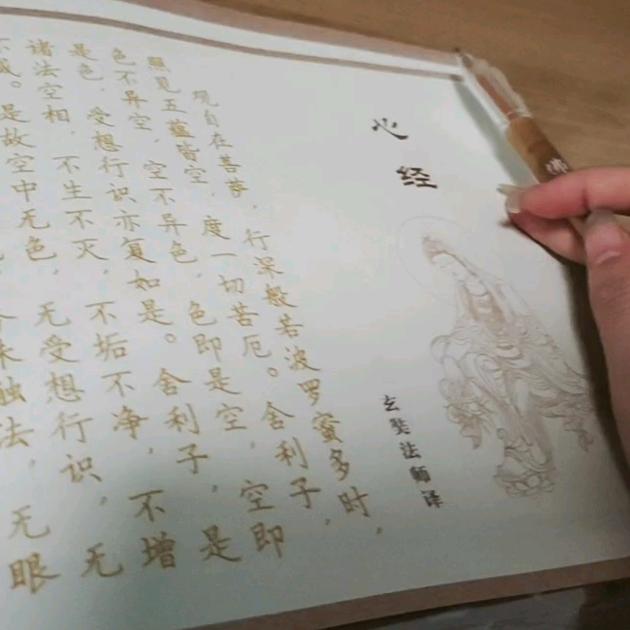 心经
玄奘法师译
观自在菩萨，行深般若波罗蜜多时，
照见五蕴皆空，度一切苦厄。舍利子，
色不异空，空不异色，色即是空，空即
是色，受想行识亦复如是。舍利子，是
诸法空相，不生不灭，不垢不净，不增
是故空中无色，无受想行识，无
触法，无眼